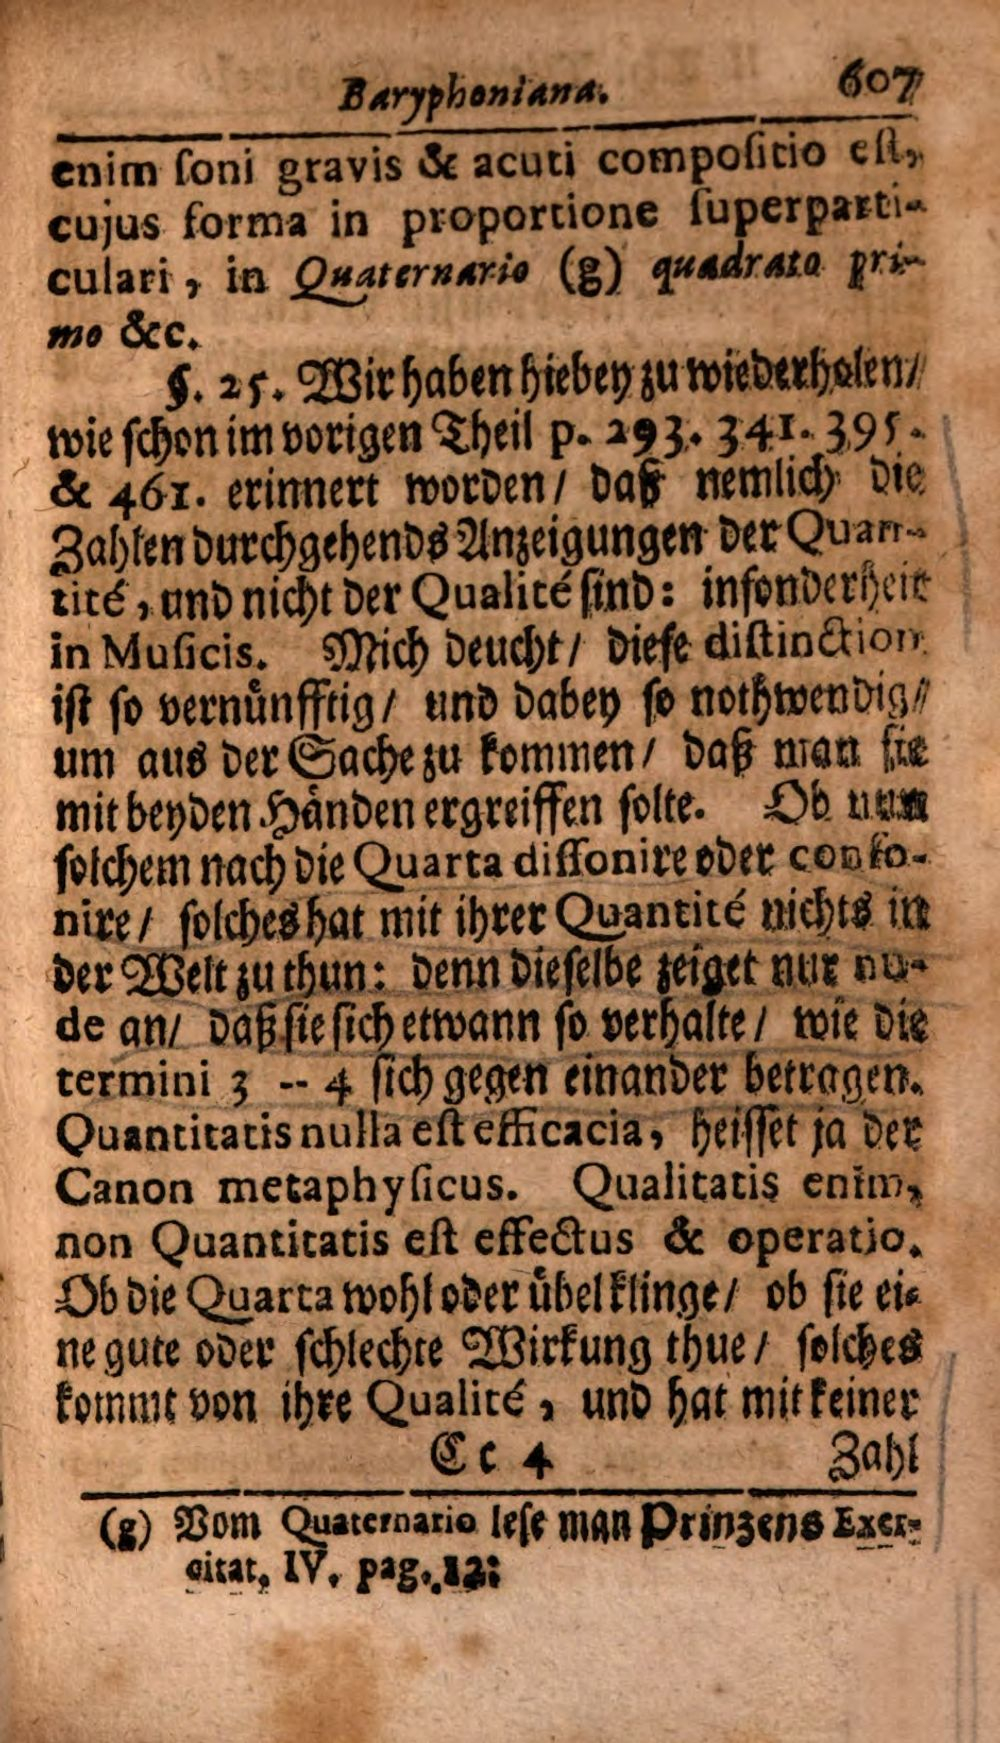 Baryphoniana. 607
enim ſoni gravis & acuti compoſitio eſt,
cujus forma in proportione ſuperparti-
culari, in Quaternario (g) quadrato pri-
mo &c.
§. 25. Wir haben hiebey zu wiederholen/
wie ſchon im vorigen Theil p. 293. 341. 395.
& 461. erinnert worden/ daß nemlich die
Zahlen durchgehends Anzeigungen der Quan-
tité, und nicht der Qualité ſind: inſonderheit
in Muſicis. Mich deucht/ dieſe diſtinction
iſt ſo vernuͤnfftig/ und dabey ſo nothwendig/
um aus der Sache zu kommen/ daß man ſie
mit beyden Haͤnden ergreiffen ſolte. Ob nun
ſolchem nach die Quarta diſſonire oder conſo-
nire/ ſolches hat mit ihrer Quantité nichts in
der Welt zu thun: denn dieſelbe zeiget nur nu-
de an/ daß ſie ſich etwann ſo verhalte/ wie die
termini 3 -- 4 ſich gegen einander betragen.
Quantitatis nulla eſt efficacia, heiſſet ja der
Canon metaphyſicus. Qualitatis enim,
non Quantitatis eſt effectus & operatio.
Ob die Quarta wohl oder uͤbel klinge/ ob ſie ei-
ne gute oder ſchlechte Wirkung thue/ ſolches
kommt von ihre Qualité, und hat mit keiner
Cc 4 Zahl
(g) Vom Quaternario leſe man Prinzens Exer-
citat. IV. pag. 12.